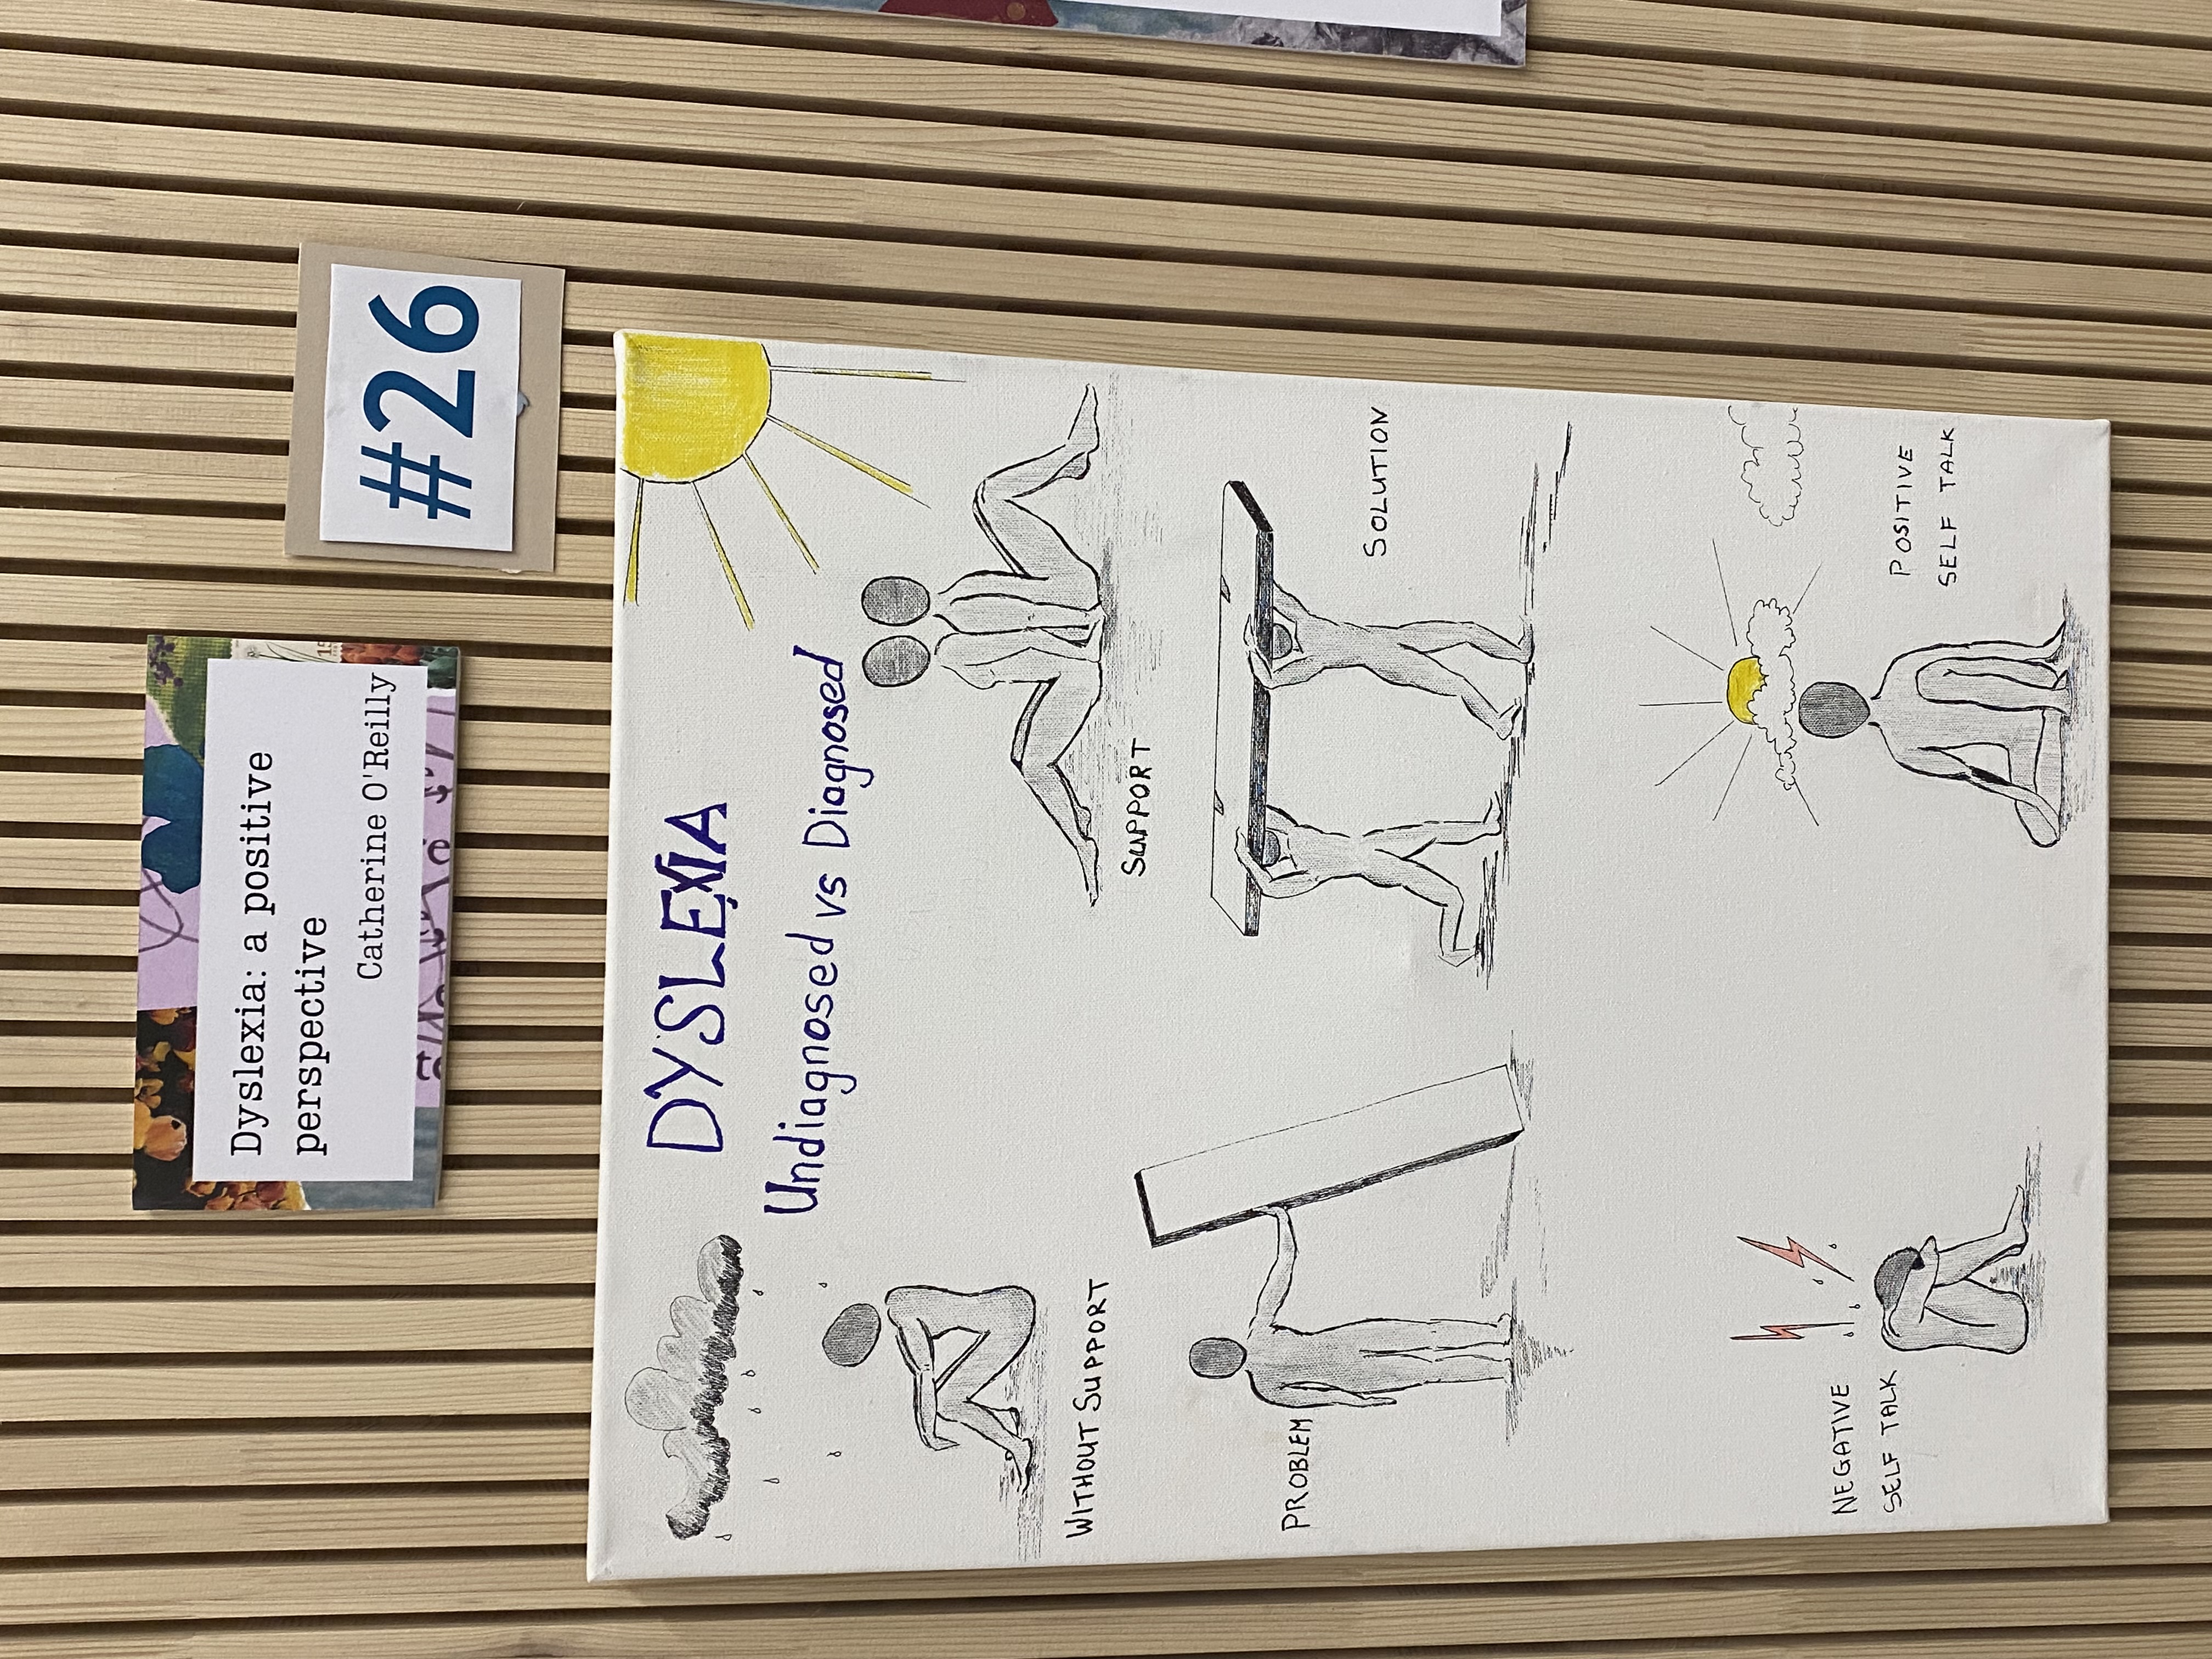 Dyslexia: a positive
perspective
Catherine O'Reilly
#26
DYSLEXIA
Undiagnosed vs Diagnosed
WITHOUT SUPPORT
SUPPORT
PROBLEM
SOLUTION
NEGATIVE
SELF TALK
POSITIVE
SELF TALK